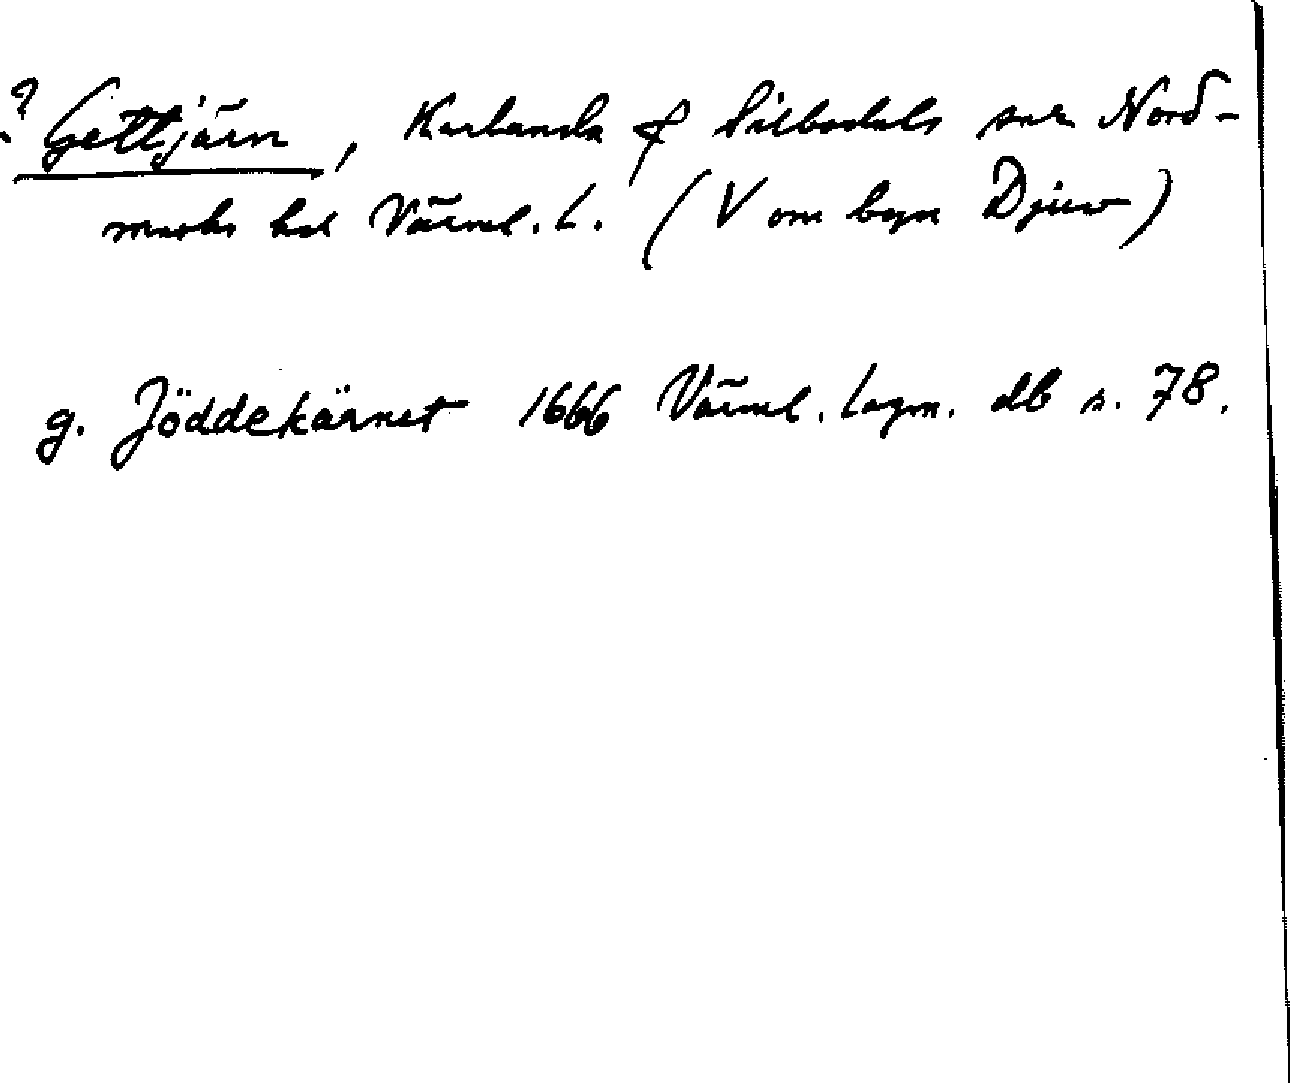 ? Gettjärn, Karlanda & Silbodals snr Nord-
marks hd Värml. l. (V om byn Djuv)
g. Jöddekärnet 1666 Värml. lagm. db s. 78.